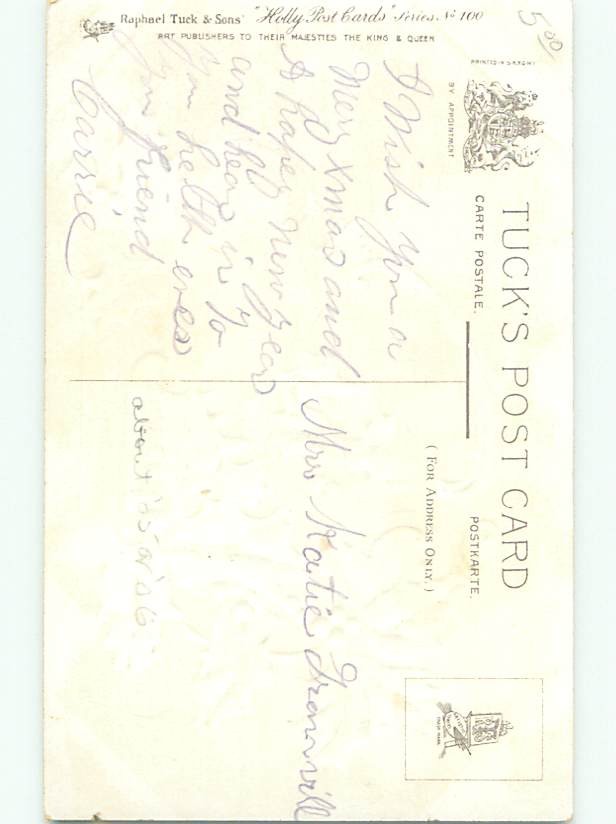 Raphael Tuck & Sons' "Holly Post Cards" Series № 100
ART PUBLISHERS TO THEIR MAJESTIES THE KING & QUEEN
5.00/
PRINTED IN SAXONY
BY APPOINTMENT
TUCK'S POST CARD
CARTE POSTALE.
POSTKARTE.
(FOR ADDRESS ONLY.)
I Wish You a
Mery Xmas and
A happy New Year
and
You health
your friend
Carrie
Katie
about
TRADE MARK